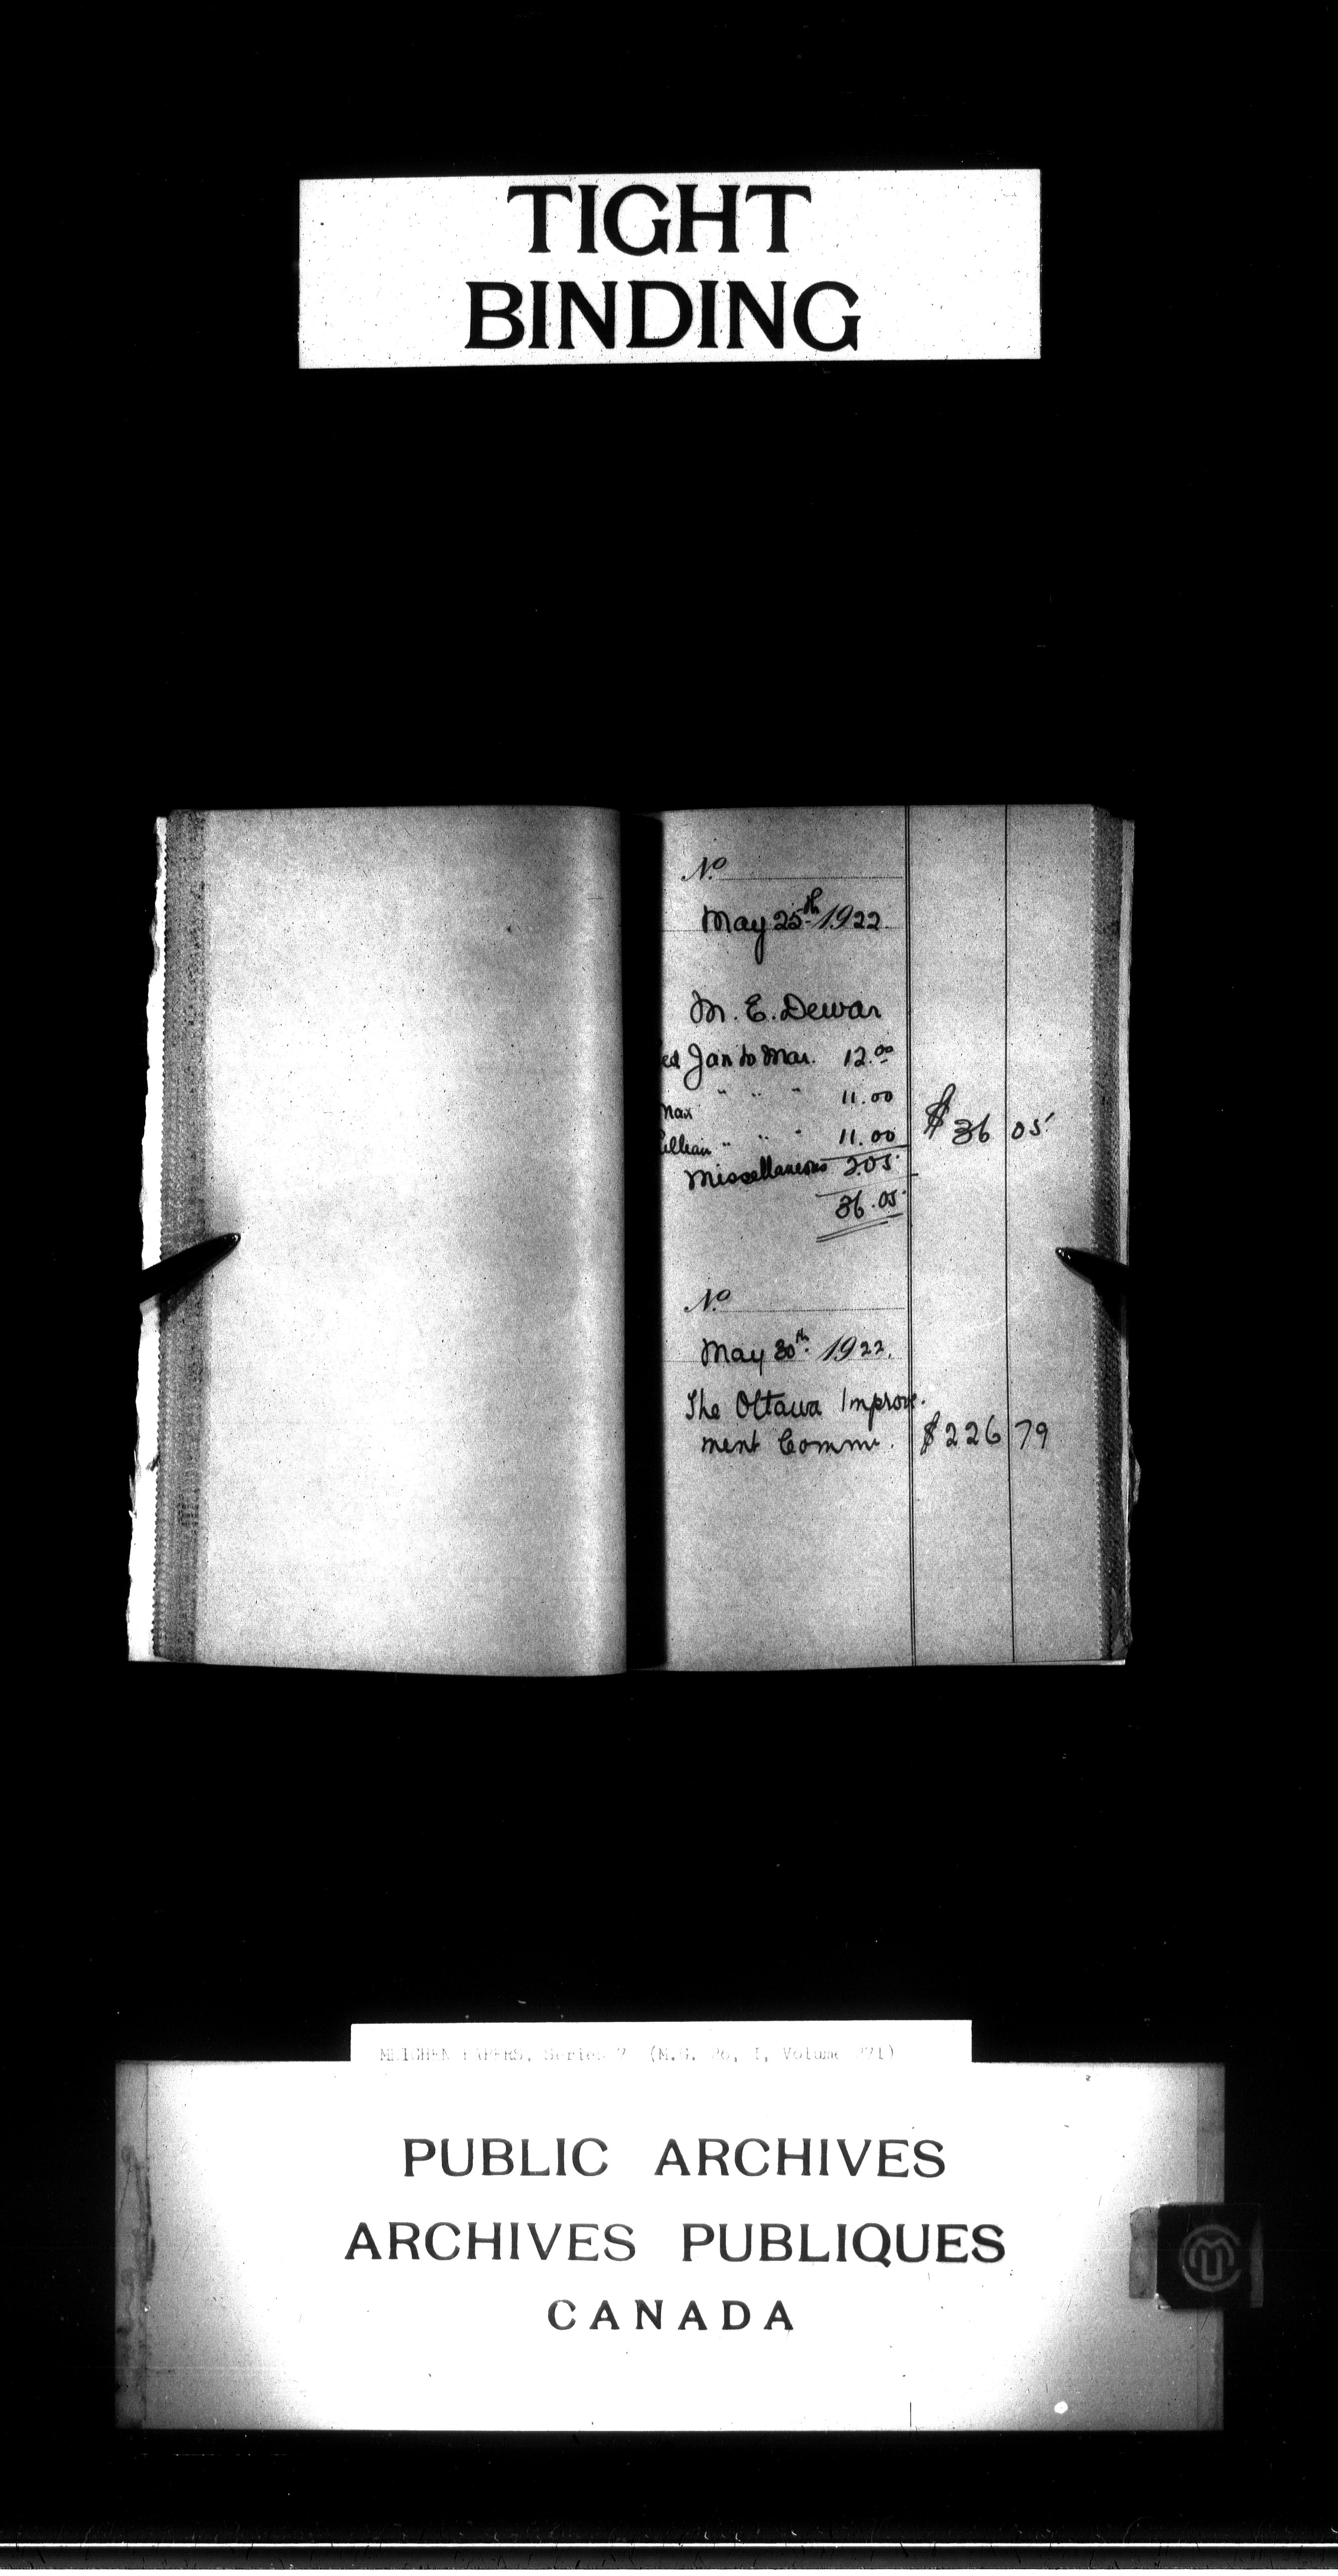 TIGHT
BINDING
No
May 25th 1922
M. E. Dewar
ed Jan to Mar. 12.00
Max " " " 11.00
illian " " " 11.00
$36 05
Miscellaneous 2.05
36.05
No
May 30th 1922.
The Ottawa Improve-
ment Comm. $226 79
MEIGHEN PAPERS, Series 7 (M.G. 26, I, Volume 271)
PUBLIC ARCHIVES
ARCHIVES PUBLIQUES
CANADA